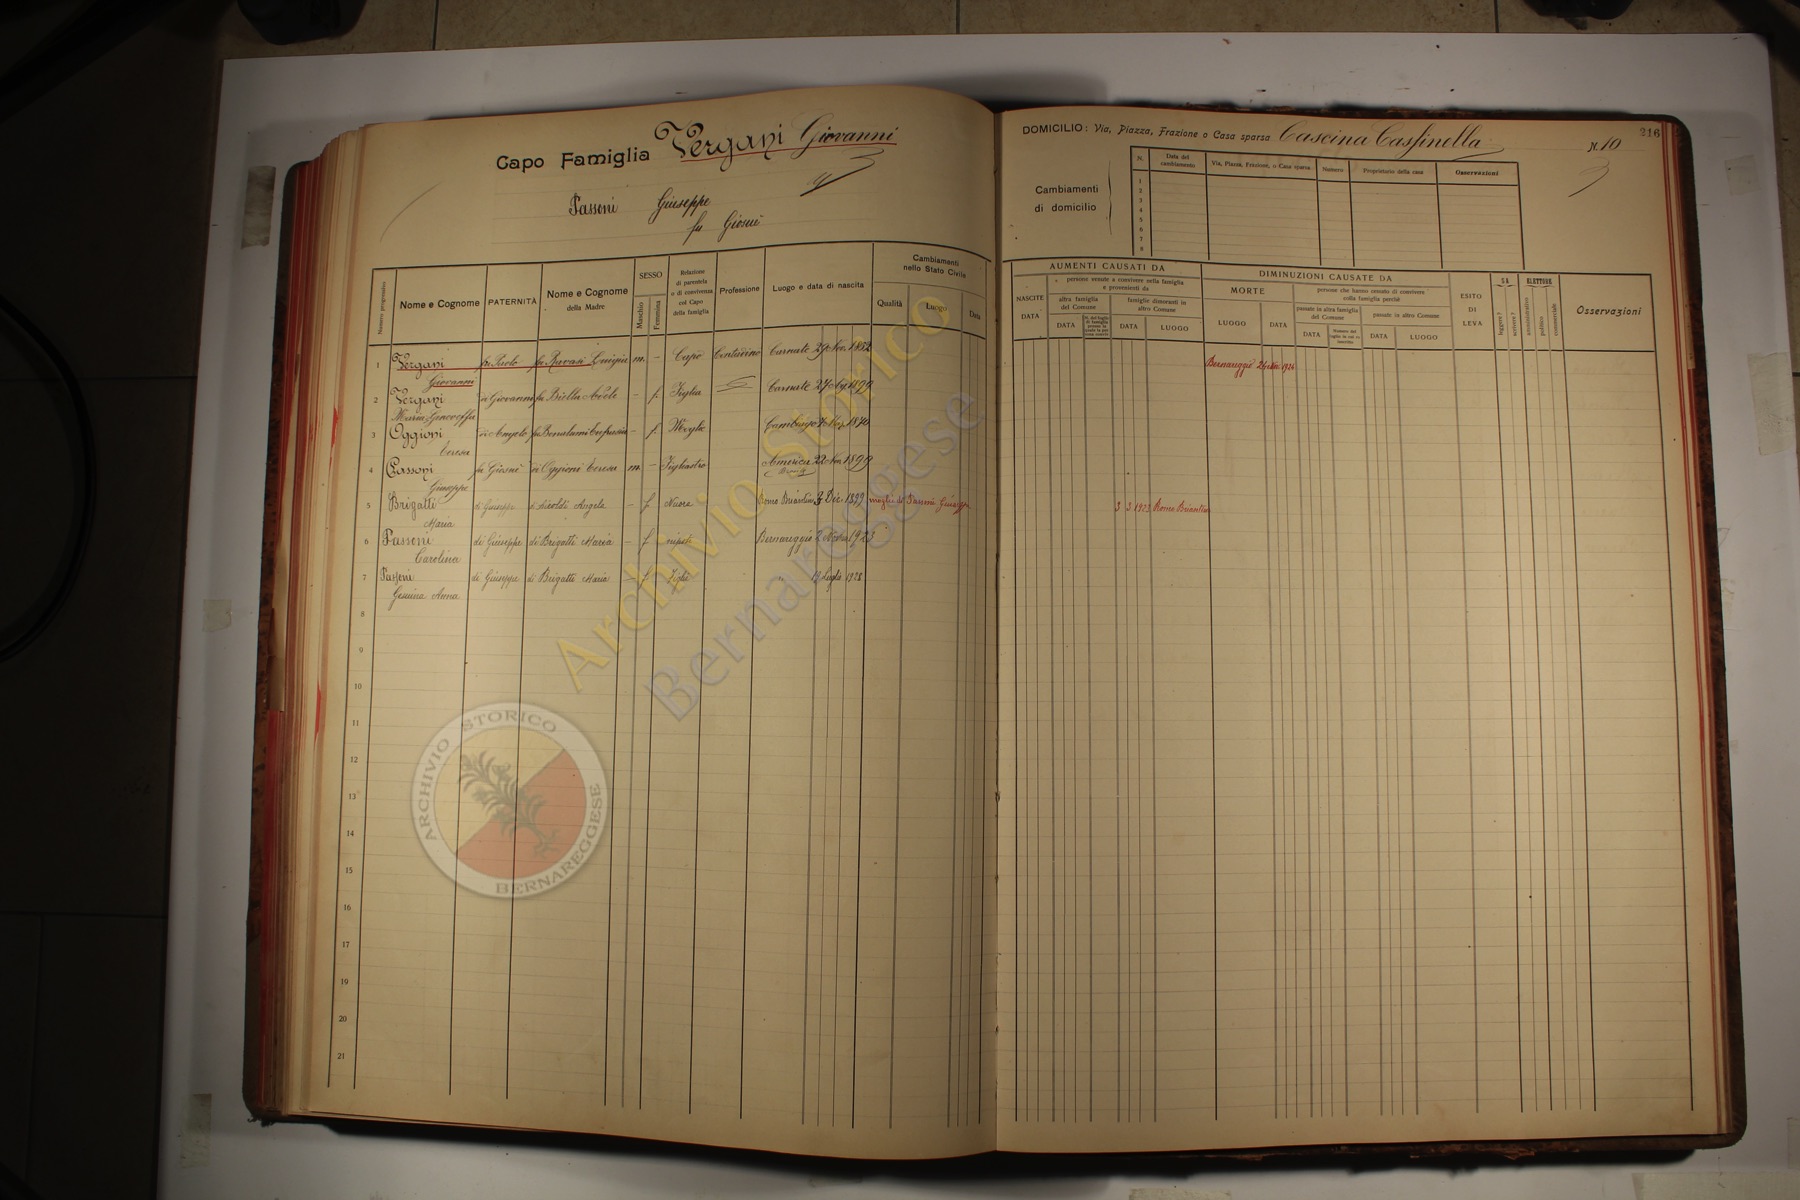 Capo Famiglia Vergani Giovanni
Passoni Giuseppe
fu Giosuè
Numero progressivo
Nome e Cognome
PATERNITÀ
Nome e Cognome
della Madre
SESSO
Maschio
Femmina
Relazione
di parentela
o di convivenza
col Capo
della famiglia
Professione
Luogo e data di nascita
Cambiamenti
nello Stato Civile
Qualità
Luogo
Data
1 Vergani fu Paolo fu Ravasi Luigia m. – Capo Contadino Carnate 29 Nov. 1852
Giovanni
2 Vergani di Giovanni fu Biella Adele – f. Figlia Carnate 27 1899
Maria
3 Oggioni di Angelo fu – f. Moglie Cambiago 1870
Teresa
4 Passoni fu Giosuè di Oggioni Teresa m. – Figliastro America 22 Nov. 1899
Giuseppe
5 Brigatti di Giuseppe di Angela – f Nuora Ronco Briantino Dic. 1899 moglie di Passoni Giuseppe
Maria
6 Passoni di Giuseppe di Brigatti Maria – f nipote Bernareggio 1923
Carolina
7 Passoni di Giuseppe di Brigatti Maria – f Figli " 19 Luglio 1928
Gesuina Anna
8
9
10
11
12
13
14
15
16
17
18
19
20
21
216
DOMICILIO: Via, Piazza, Frazione o Casa sparsa Cascina Cassinella N. 10
Cambiamenti
di domicilio
N.
Data del
cambiamento
Via, Piazza, Frazione, o Casa sparsa
Numero
Proprietario della casa
Osservazioni
1
2
3
4
5
6
7
8
AUMENTI CAUSATI DA
NASCITE
DATA
persone venute a convivere nella famiglia
e provenienti da
altra famiglia
del Comune
DATA
famiglie dimoranti in
altro Comune
DATA
LUOGO
DIMINUZIONI CAUSATE DA
MORTE
LUOGO
DATA
persone che hanno cessato di convivere
colla famiglia perchè
passate in altra famiglia
del Comune
DATA
passate in altro Comune
DATA
LUOGO
ESITO
DI
LEVA
SA
leggere?
scrivere?
ELETTORE
amministrativo
politico
commerciale
Osservazioni
Bernareggio 1924
3 3 1923 Ronco Briantino
Archivio Storico
Bernareggese
ARCHIVIO STORICO
BERNAREGGESE